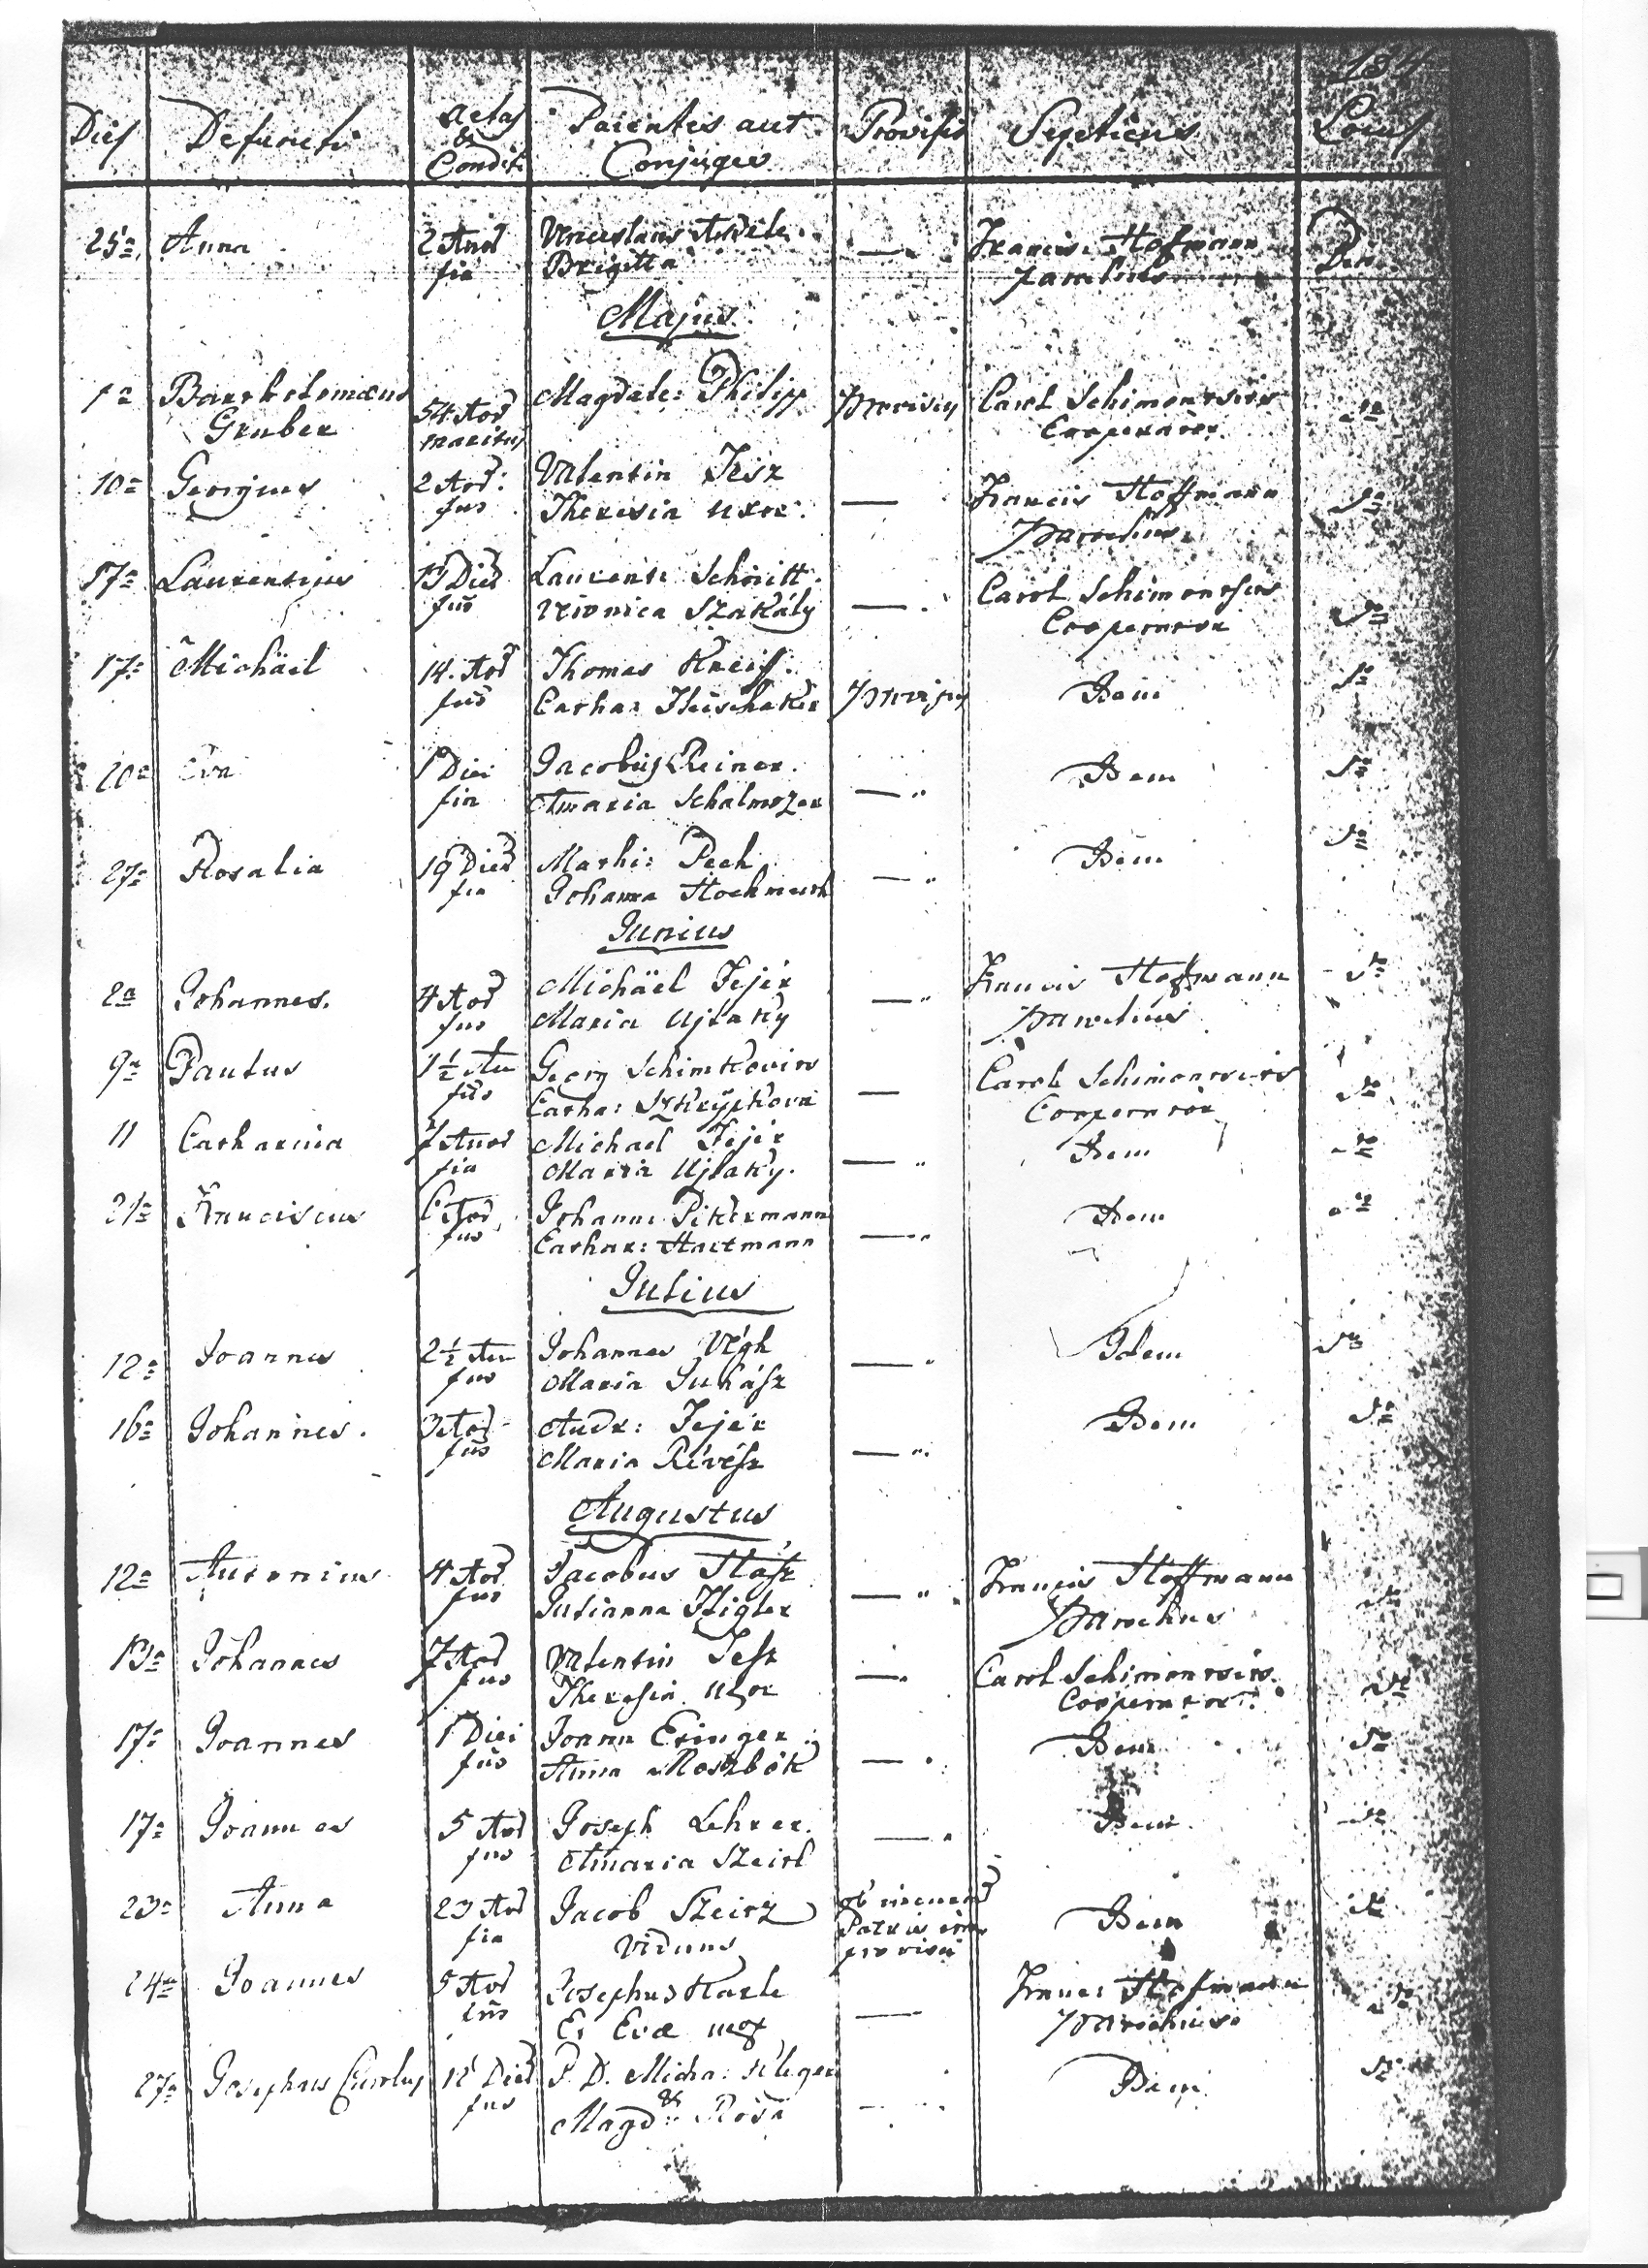 134
Dies Defuncti Aetas & Condit: Parentes aut Conjuges Provisio Sepeliens Locus
25a Anna 2 Anor fia Brigitta — Francis: Hofmann Parochus
Majus
1a Bartholomæus Gruber 54 Anor maritus Magdale: Philipp Provisus Carol Schimonvsivs Cooperator
10a Georgius 2 Anor: fius Valentin Jesz Theresia uxor. — Francis Hoffmann Parochus
17a Laurentius 13 Dier fius Laurent: Schmitt Veronica Szakály — Carol Schimonvsivs Cooperator
17a Michäel 14. Anor fius Thomas Kreiss. Catha: Fleischaker Provisus Idem
20a Eva 1 Diei fia Jacobus Reiner. Amaria Schalmozer — Idem
27a Rosalia 19 Dier fia Mathi: Pech Johanna Hochmuth — Idem
Junius
2a Johannes. 4 Anor fius Michäel Fejér Maria Ujlaky — Francis Hoffmann Parochus
9a Paulus 1½ An fius Georg Schimkovics Catha: — Carol Cooperator
11 Catharina Anor fia Michael Fejér Maria Ujlaky. — Idem
21a Franciscus Anor fius Johann: Pikermann Cathar: Hartmann — Idem
Julius
12a Joannes 2½ An fius Johannes Végh Maria Juhász — Idem
16a Johannes. 3 Anor fius Andr: Fejér Maria Révész — Idem
Augustus
12a Antonius 4 Anor fius Jacobus Hász Julianna Zigler — Francis Hoffmann Parochus
13a Johannes 7 Anor fius Valentin Jesz Theresia uxor — Carol Cooperator
17a Joannes 1 Diei fius Joann Eringer Anna — Idem
17a Joannes 5 Anor fius Joseph Lehrer. Amaria Szeirl — Idem
23a Anna 23 Anor fia Jacob Szeirz viduus ob Patris Idem
24a Joannes 5 Anor fius Josephus Karle Et Evæ — Franc: Hofmann Parochus.
27a Josephus Carolus 12 Dier fius P. D. Micha: Kleger & Magd: Rósa — Idem